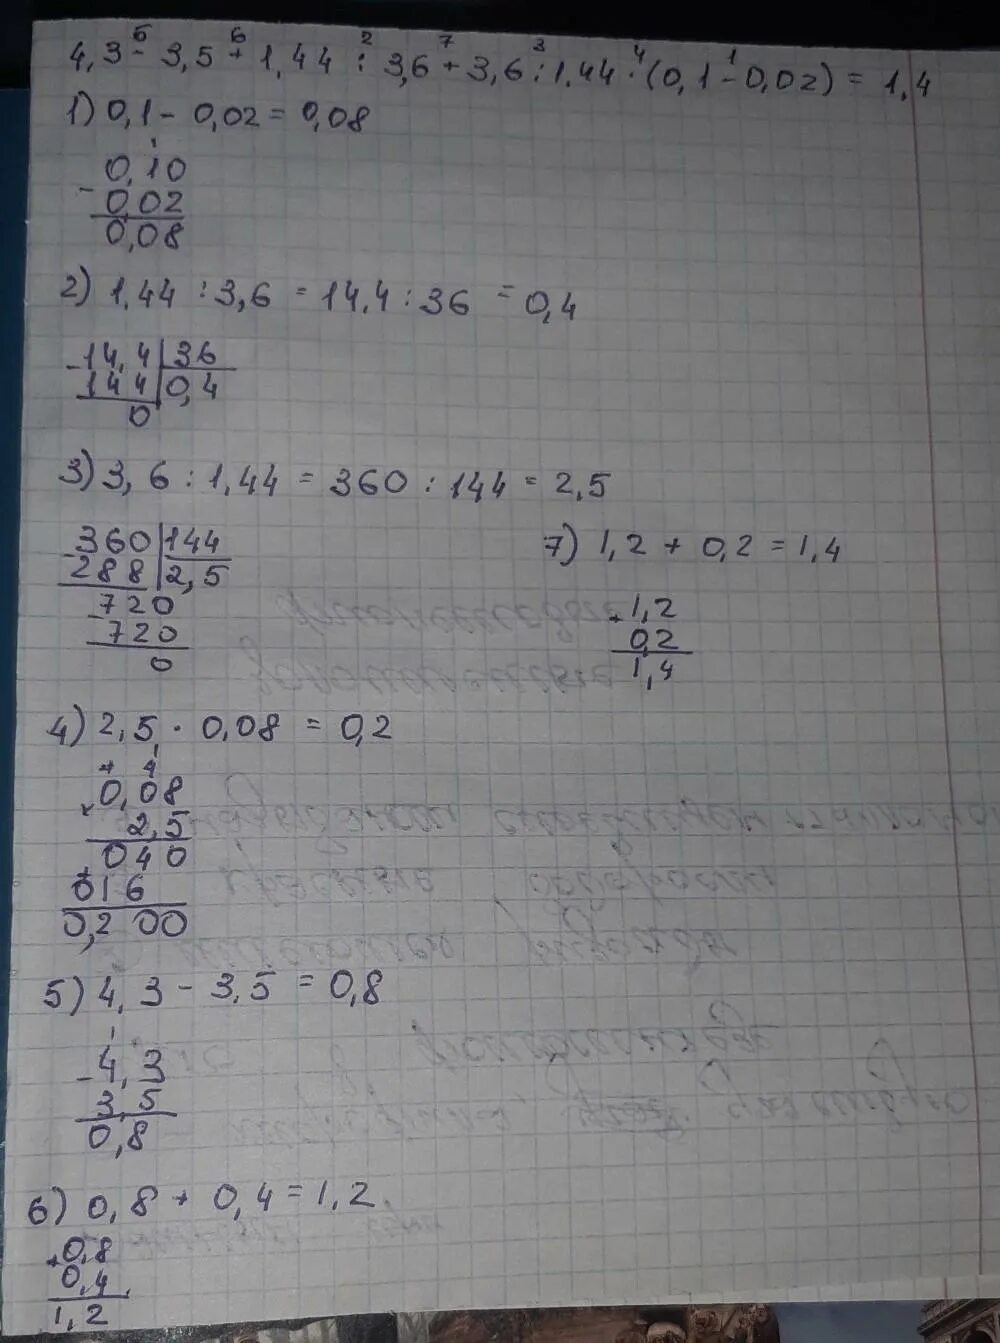 5 6 2 7 3 4 1
4,3 - 3,5 + 1,44 : 3,6 + 3,6 : 1,44 · (0,1 - 0,02) = 1,4
1) 0,1 - 0,02 = 0,08
0,10
- 0,02
0,08
2) 1,44 : 3,6 = 14,4 : 36 = 0,4
- 14,4 | 36
144 | 0,4
0
3) 3,6 : 1,44 = 360 : 144 = 2,5
- 360 | 144
288 | 2,5
- 720
720
0
7) 1,2 + 0,2 = 1,4
+ 1,2
0,2
1,4
4) 2,5 · 0,08 = 0,2
× 0,08
2,5
040
+ 016
0,200
5) 4,3 - 3,5 = 0,8
- 4,3
3,5
0,8
6) 0,8 + 0,4 = 1,2
+ 0,8
0,4
1,2